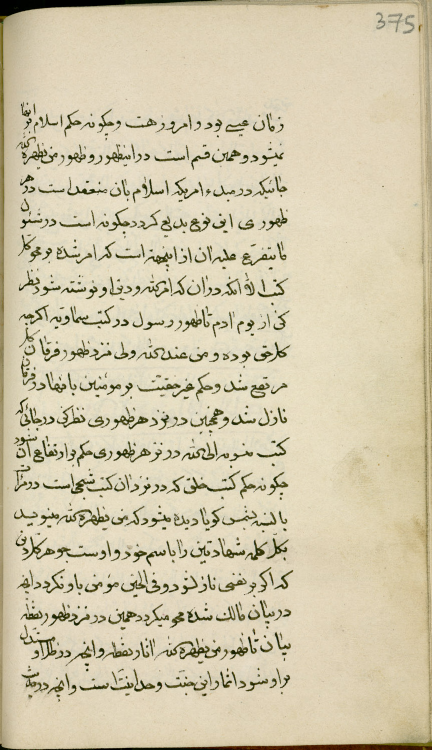 375
زمان عیسی بود و امروز هست و چگونه حکم اسلام بر آنها
نمیشود و همین قسم است در این ظهور و ظهور من یظهره الله
جائیکه در مبدء امریکه اسلام بان منعقد است در هر
ظهوری این نوع بدیع گردد چگونه است در شئون
ما یتفرع علیه ان از اینجهة است که امر شده بر محو کل
کتب الا انکه در ان که امر الله و دین او نوشته شود نظر
کن از یوم ادم تا ظهور رسول در کتب سماویه اگرچه
کل حق بوده و من عند الله ولی نزد ظهور فرقان کل
مرتفع شد و حکم غیر حقیت بر مومنین بانها در فرقان
نازل شد و همچنین در نزد هر ظهوری نظر کن در جائی که
کتب منسوبه الی الله در نزد هر ظهوری حکم بر ارتفاع ان شود
چگونه حکم کتب خلق که در نزد ان کتب شبحی است در مرات
بالنسبه بشمس گویا دیده میشود که من یظهره الله مینویسد
بکل کلمه شهادتین را باسم خود و اوست جوهر کل دین
که اگر بر نفسی نازل شود و فی الحین مومن باو نگردد آنچه
در بیان مالک شده محو میگردد همین در نزد ظهور نقطه
بیان تا ظهور من یظهره الله اثار نقطه و آنچه در ظل او مستدل
بر او شود اثمار این جنت وحدانیت است و آنچه در